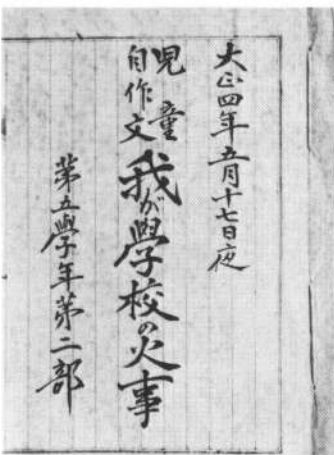 大正四年五月十七日夜
児童
自作文
我が學校の火事
第五學年第二部